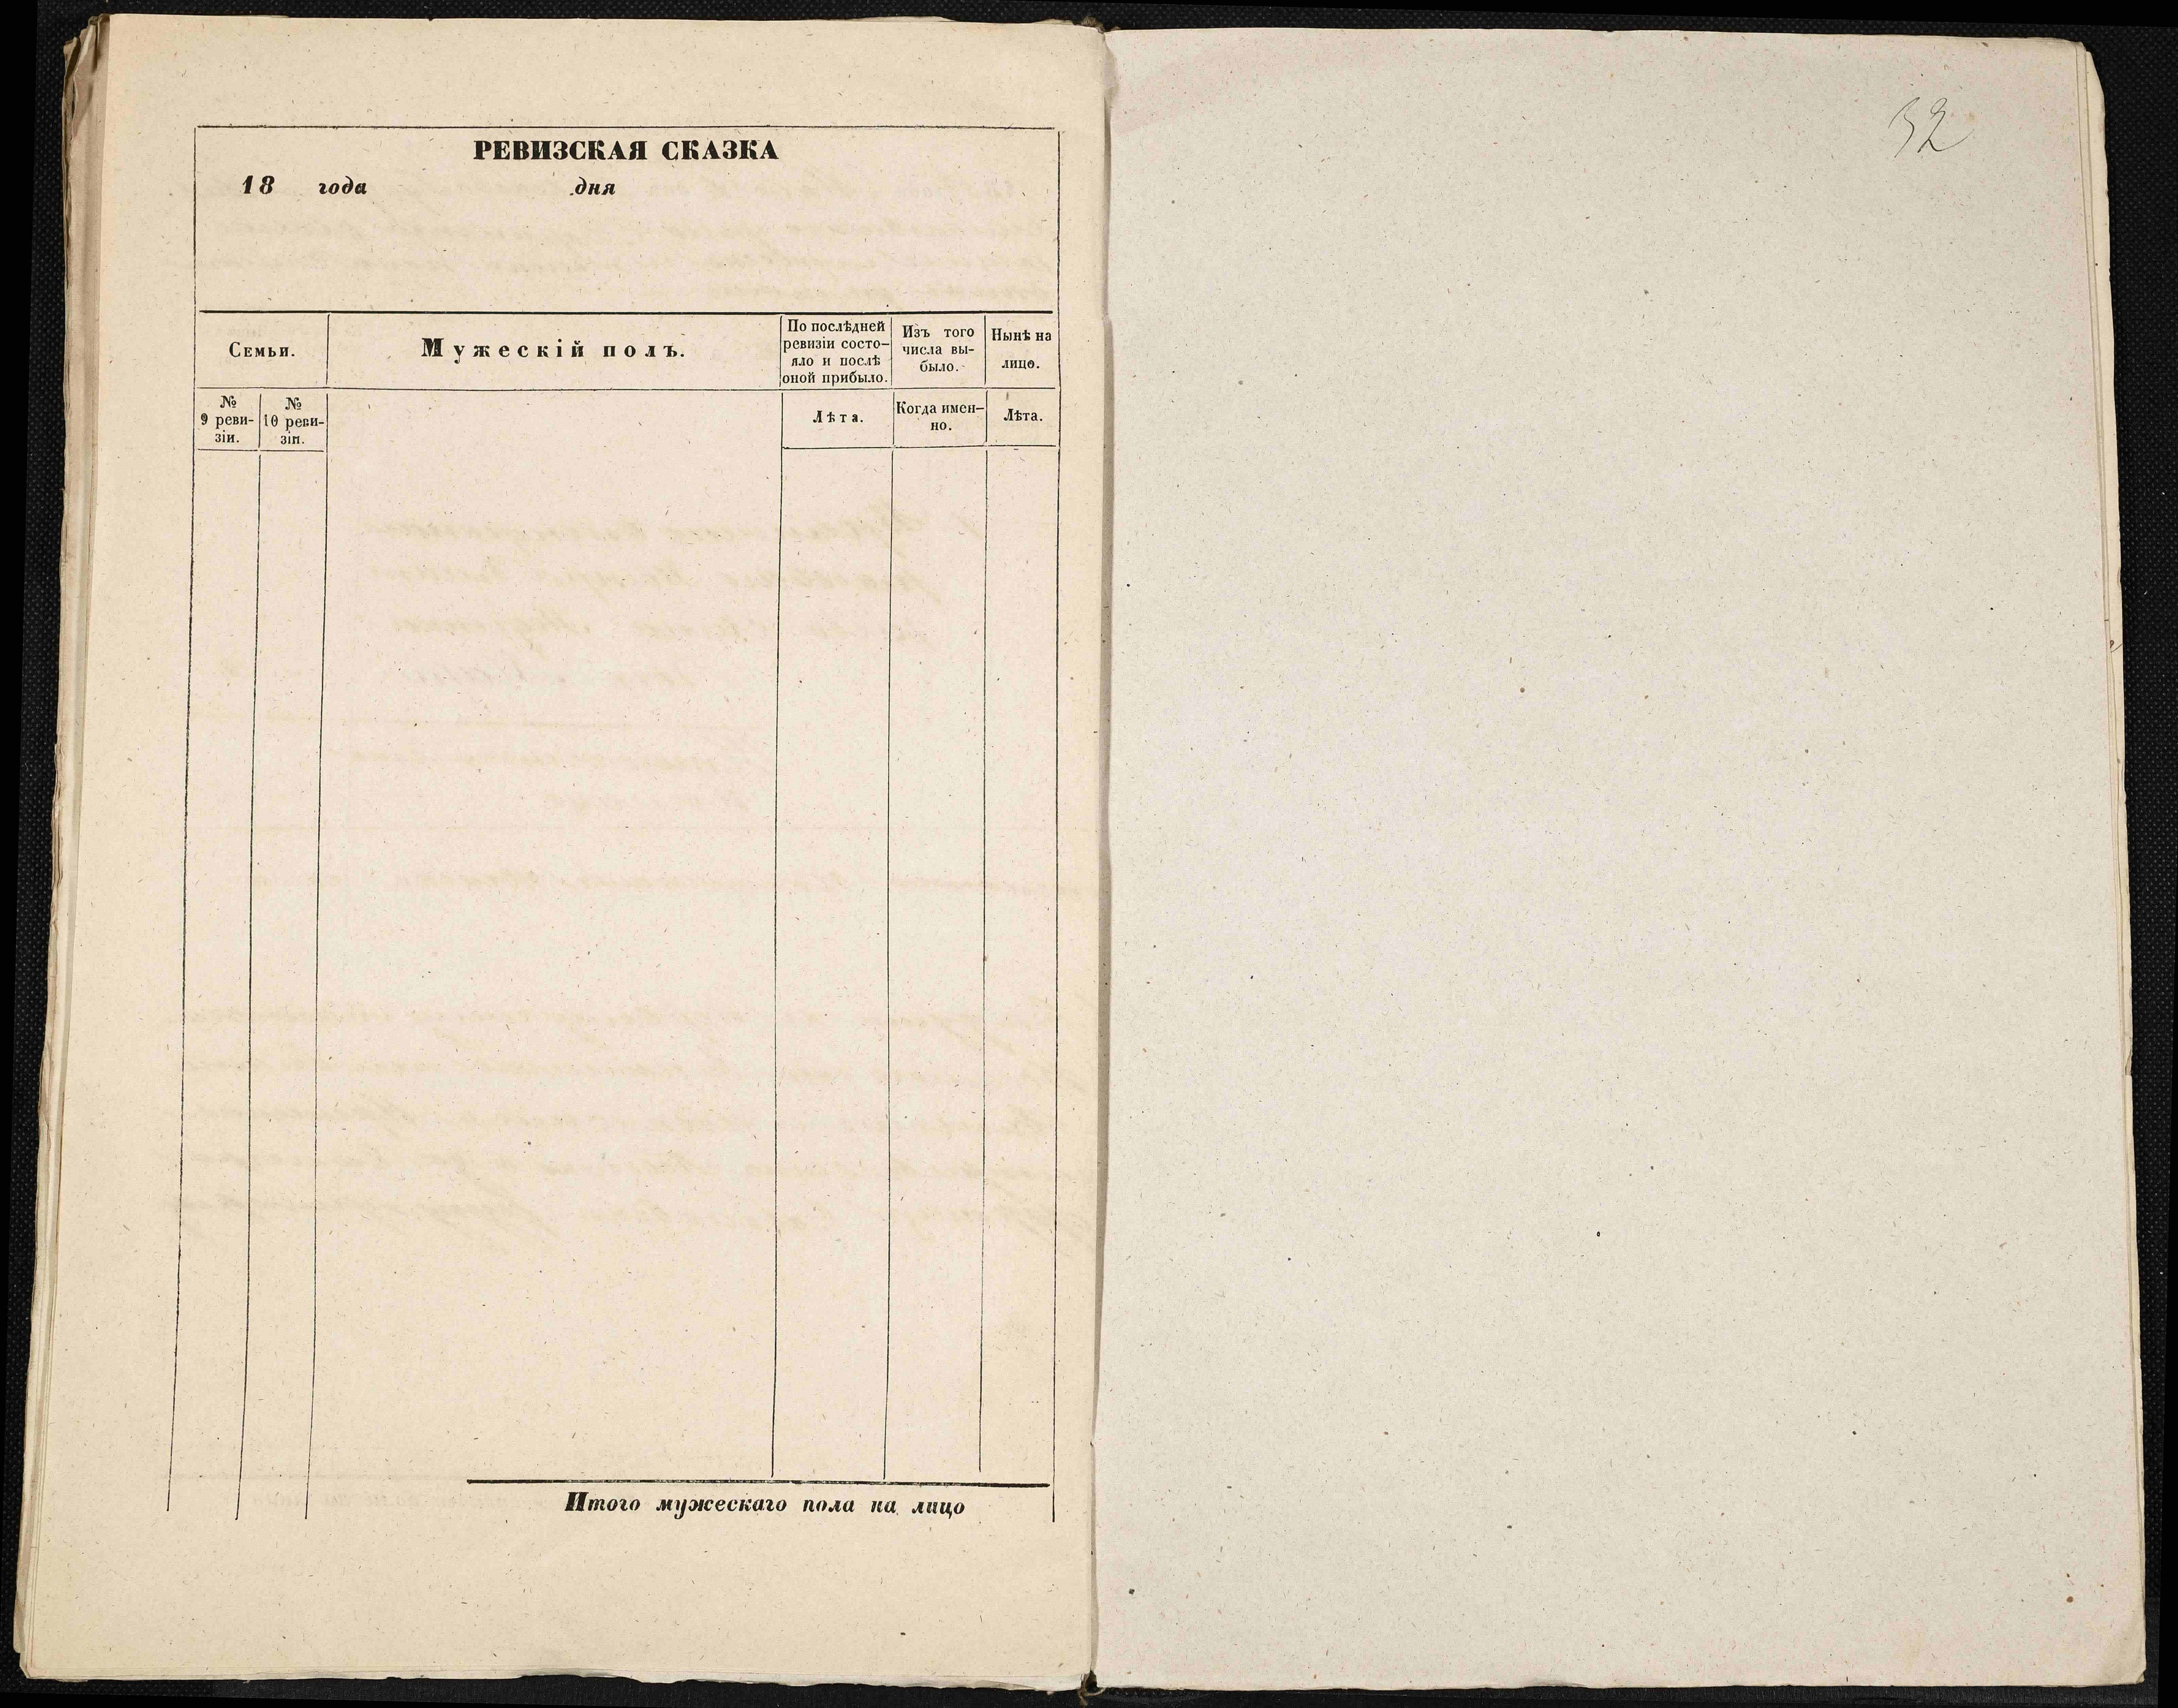 РЕВИЗСКАЯ СКАЗКА
18 года дня
Семьи.
Мужескій полъ.
По послѣдней
ревизіи состо-
яло и послѣ
оной прибыло.
Изъ того
числа вы-
было.
Нынѣ на
лицо.
№
9 реви-
зіи.
№
10 реви-
зіи.
Лѣта.
Когда имен-
но.
Лѣта.
Итого мужескаго пола на лицо
32